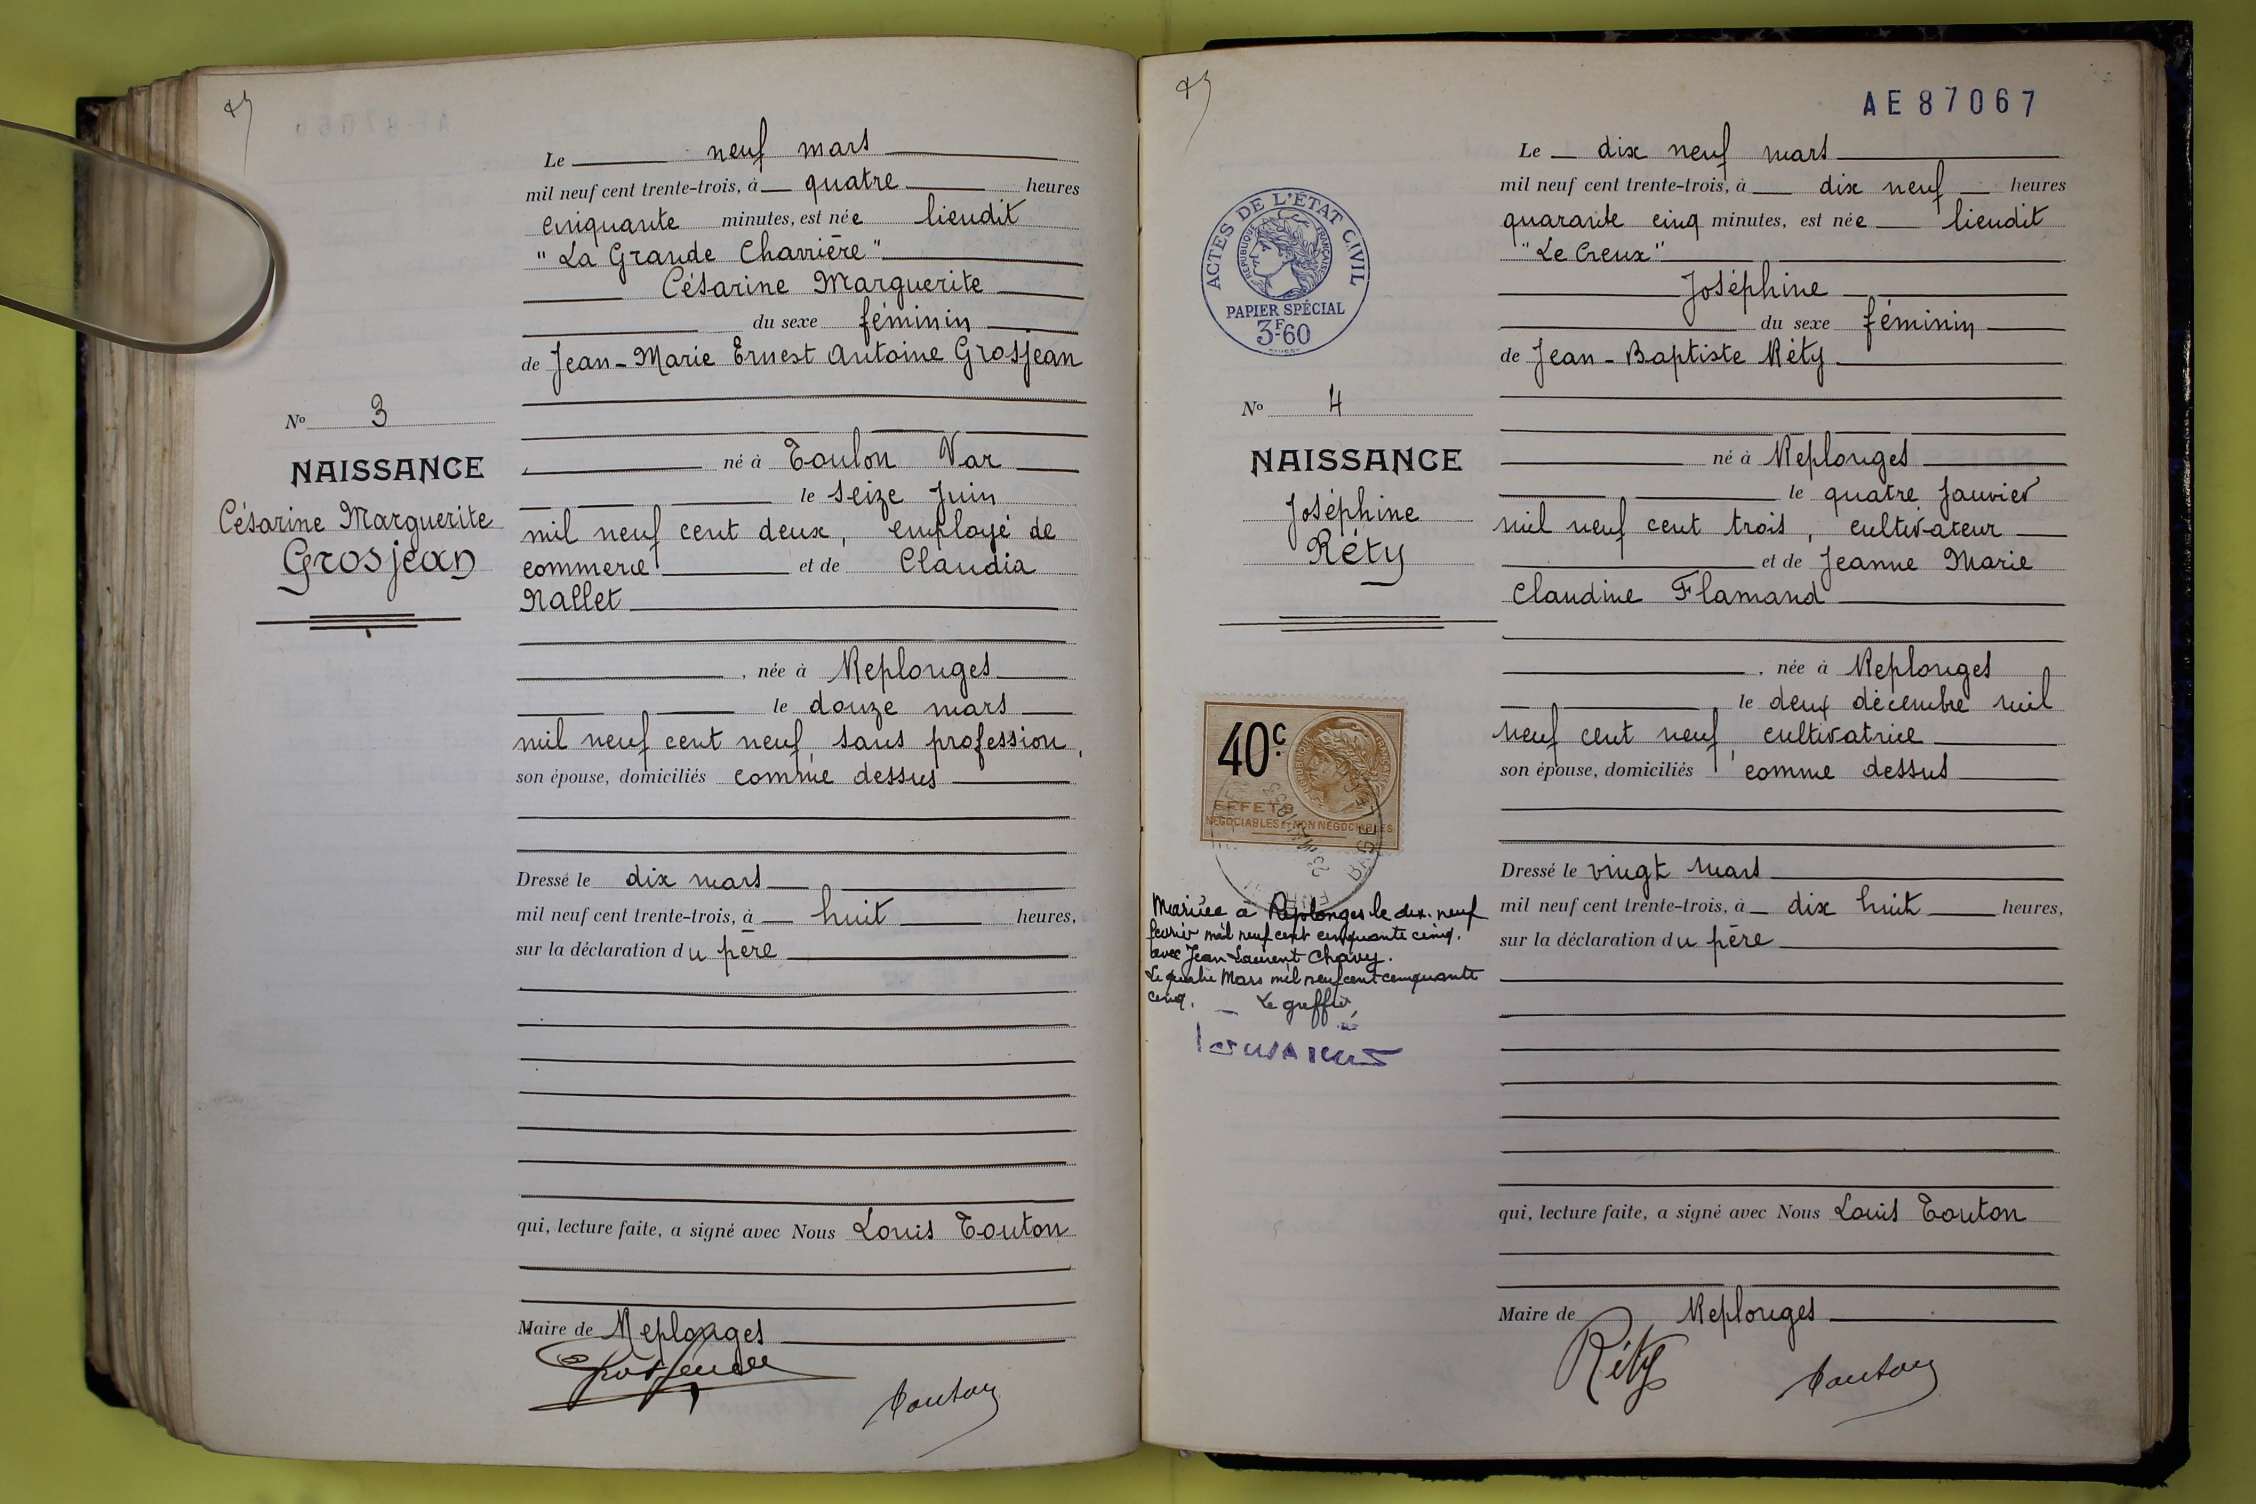 Le neuf mars
mil neuf cent trente-trois, à quatre heures
cinquante minutes, est née lieudit
"La Grande Charrière"
Césarine Marguerite
du sexe féminin
de Jean-Marie Ernest Antoine Grosjean
No 3
né à Toulon Var
NAISSANCE
le seize Juin
Césarine Marguerite
mil neuf cent deux, employé de
Grosjean
commerce et de Claudia
Rallet
, née à Replonges
le douze mars
mil neuf cent neuf sans profession,
son épouse, domiciliés comme dessus
Dressé le dix mars
mil neuf cent trente-trois, à huit heures,
sur la déclaration du père
qui, lecture faite, a signé avec Nous Louis Touton
Maire de Replonges
Grosjean
Touton
AE87067
Le dix neuf mars
mil neuf cent trente-trois, à dix neuf heures
quarante cinq minutes, est née lieudit
"Le Creux"
Joséphine
du sexe féminin
de Jean-Baptiste Réty
ACTES DE L'ÉTAT CIVIL
RÉPUBLIQUE FRANÇAISE
PAPIER SPÉCIAL
3F-60
No 4
né à Replonges
NAISSANCE
le quatre Janvier
Joséphine
mil neuf cent trois, cultivateur
Réty
et de Jeanne Marie
Claudine Flamand
, née à Replonges
le deux décembre mil
neuf cent neuf, cultivatrice
son épouse, domiciliés comme dessus
40c.
EFFETS
NÉGOCIABLES & NON NÉGOCIABLES
Dressé le vingt mars
mil neuf cent trente-trois, à dix huit heures,
sur la déclaration du père
Mariée à Replonges le dix-neuf
février mil neuf cent cinquante cinq.
avec Jean Laurent Chavy.
Le quatre Mars mil neuf cent cinquante
cinq. Le greffier,
qui, lecture faite, a signé avec Nous Louis Touton
Maire de Replonges
Réty
Touton